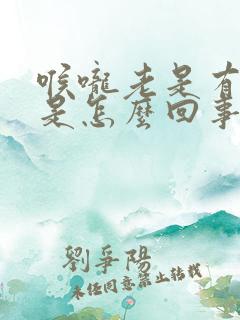 喉嚨老是有
是怎麼回事
劉爭陽
未经同意禁止转载